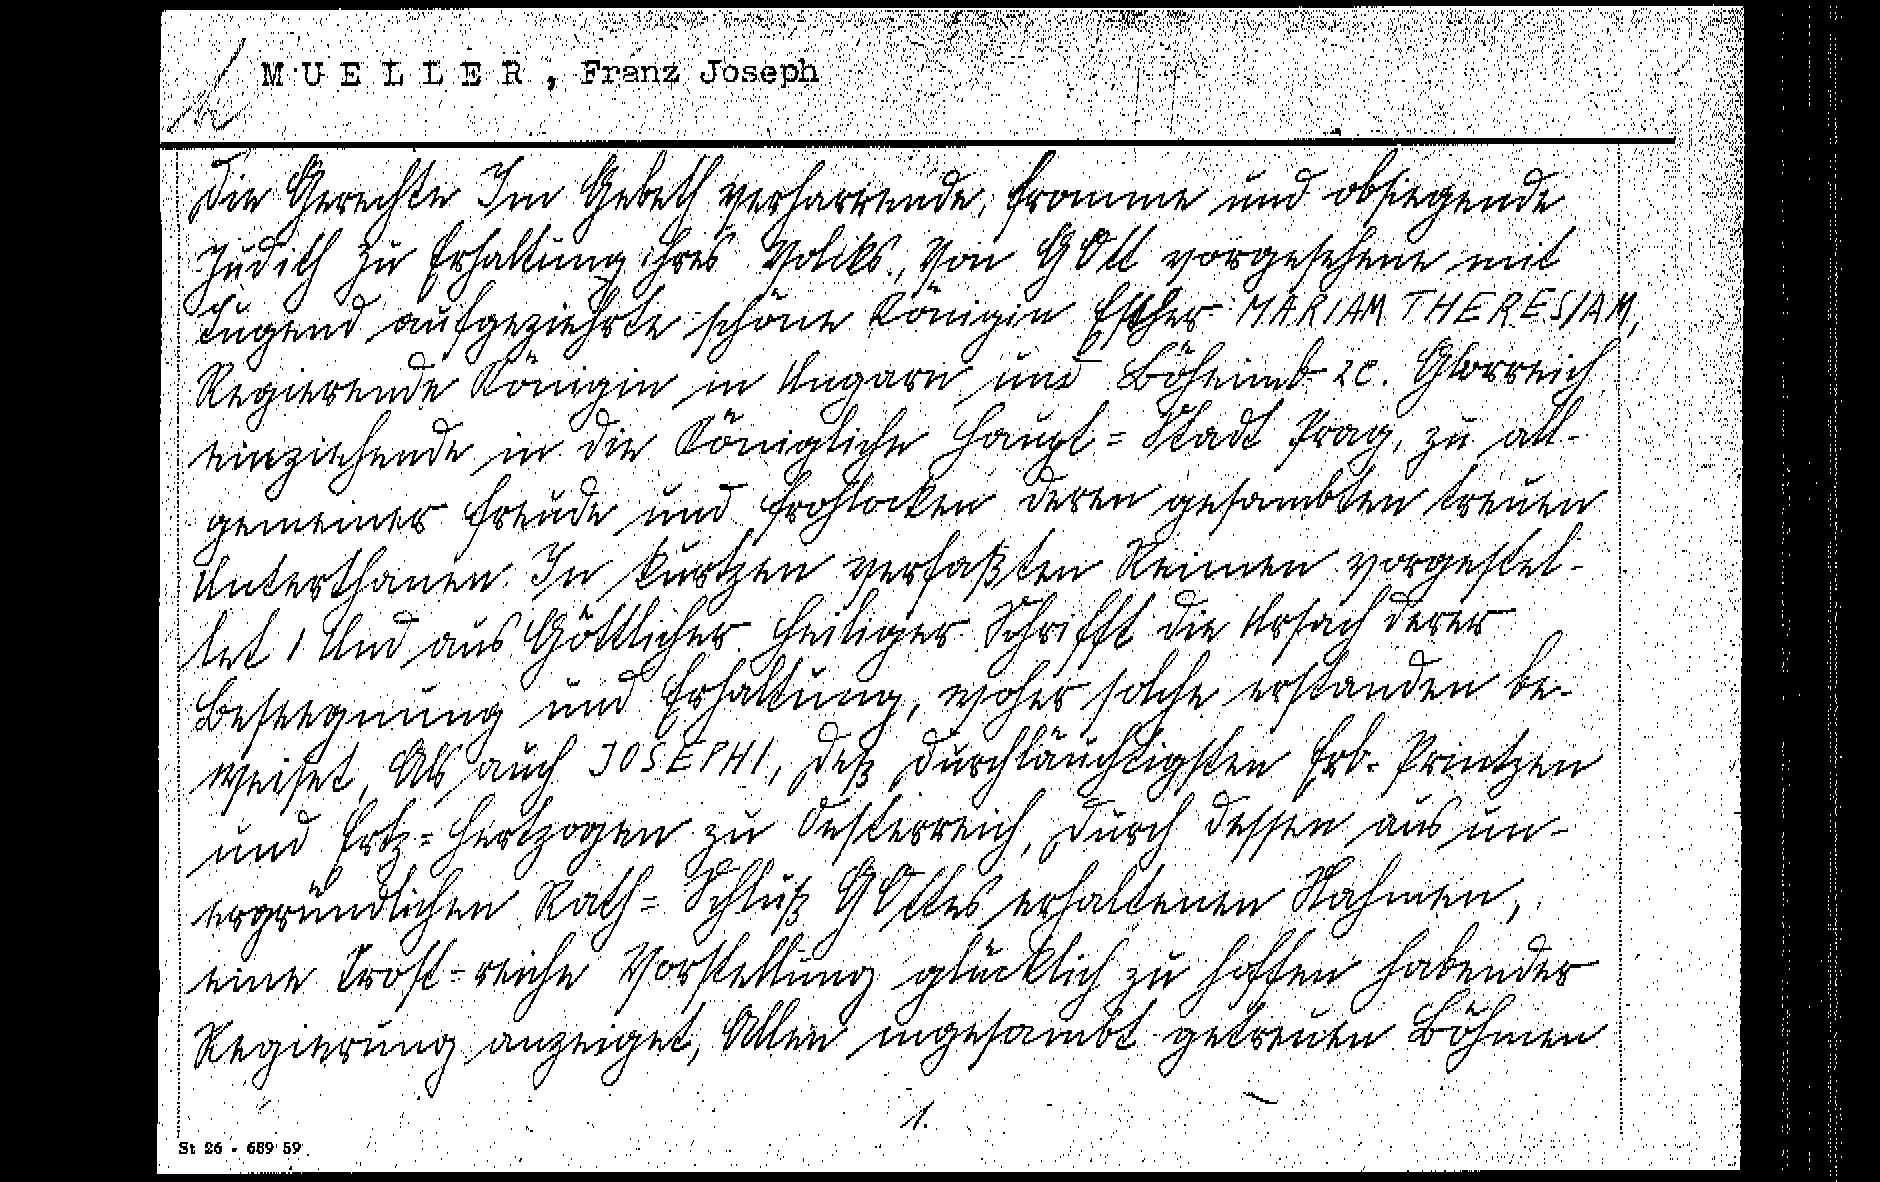 MUELLER, Franz Joseph
Die Gerechte Im Gebeth verharrende, fromme und obsiegende
Judith zu Erhaltung ihres Volcks, Von GOtt vorgesehene mit
Tugend aufgeziehrte schöne Königin Esther MARIAM THERESIAM,
Regierende Königin in Ungarn und Böheimb 2c. Glorreich
einziehende in die Königliche Haupt=Stadt Prag, zu all-
gemeiner Freude und Frohlocken deren gesambten treuen
Unterthanen. In kurtzen verfaßten Reimen vorgestel-
let / Und aus Göttlicher Heiliger Schrifft die Ursach derer
Beseegnung und Erhaltung, woher solche erstanden be-
weiset, Als auch JOSEPHI, deß Durchläuchtigsten Erb-Printzen
und Ertz=Hertzogen zu Oesterreich, Durch dessen aus un-
ergründlichen Rath=Schluß GOttes erhaltenen Nahmen,
eine Trost=reiche Vorstellung glücklich zu hoffen habender
Regierung anzeiget, Allen ingesambt getreuen Böhmen
1.
St 26 - 689 59